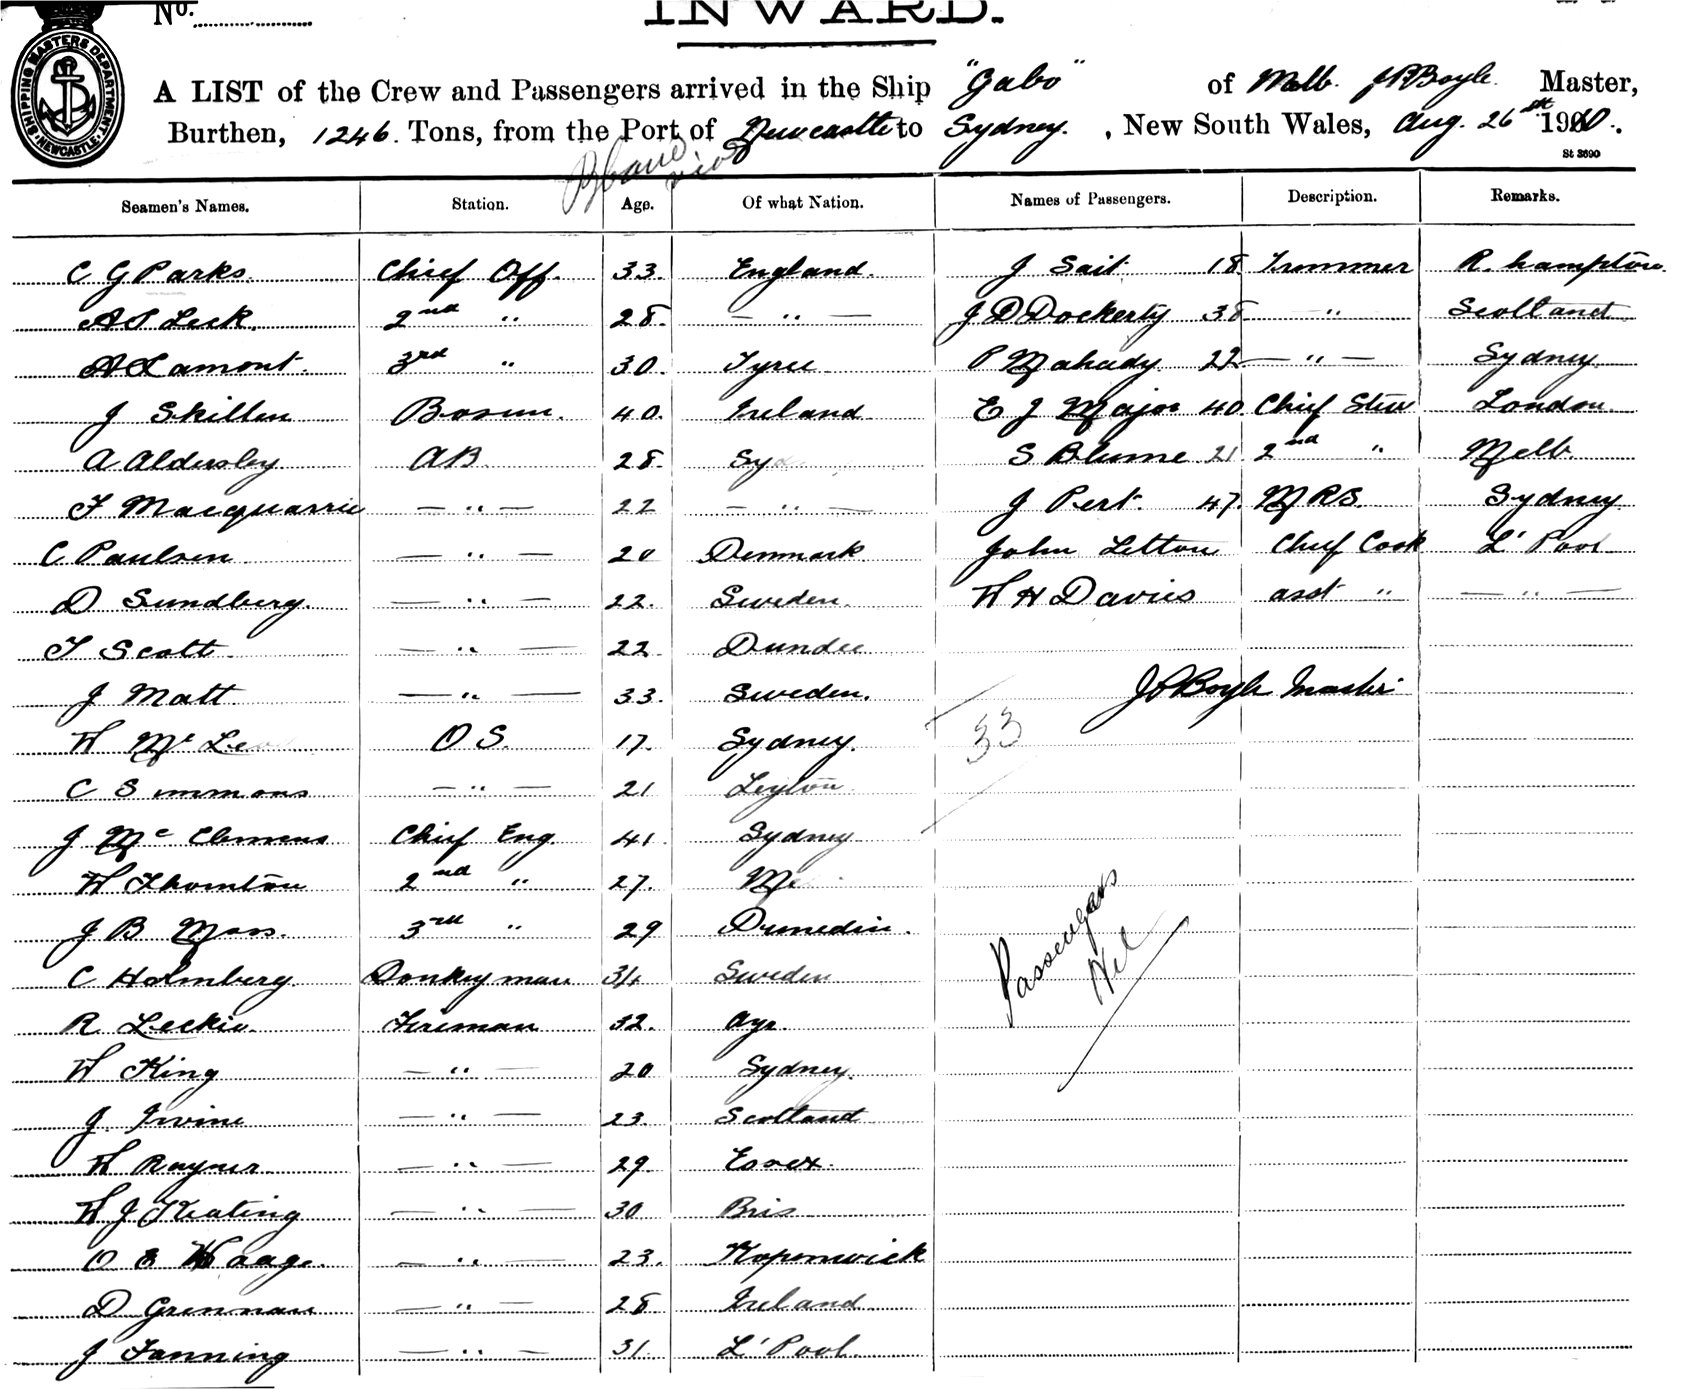 No.
INWARD.
SHIPPING MASTERS DEPARTMENT. NEWCASTLE.
A LIST of the Crew and Passengers arrived in the Ship "Gabo" of Melb. J P Boyle. Master,
Burthen, 1246. Tons, from the Port of Newcastle to Sydney. , New South Wales, Aug. 26th 1900.
St 3690
Seamen's Names. Station. Age. Of what Nation. Names of Passengers. Description. Remarks.
C G Parks. Chief Off. 33. England. J Sait 18 Trimmer R. hampton.
A P Leek. 2nd " 28. — " — J D Dockerty 38 — " — Scotland
A Lamont. 3rd " 30. Tyree P Mahady 22 — " — Sydney
J Skillen Bosun. 40. Ireland E J Major 40 Chief Stew London.
A Aldersley AB. 28. Syd S Blume 21 2nd " Melb.
F Macquarrie — " — 22 — " — J Pert. 47. MRS. Sydney
C Paulsen — " — 20 Denmark John Litton Chief Cook L'Pool
D Sundberg. — " — 22. Sweden. W H Davies asst " — " —
T Scott — " — 22 Dundee
J Matt — " — 33. Sweden. J P Boyle Master
W McLeod O S. 17. Sydney. 33
C Simmons — " — 21 Leyton
J McClemens Chief Eng 41 Sydney
W Thornton 2nd " 27. Me
J B Moss. 3rd " 29 Dunedin. Passengers
C Holmberg. Donkeyman 34 Sweden Nil
R Leckie. Fireman 32. Ayr.
W King — " — 20 Sydney.
J. Irvine — " — 23. Scotland
W Rayner. — " — 29. Essex.
W J Keating — " — 30 Bris
O E Haage. — " — 23. Koponwick
D Grennan — " — 28 Ireland
J Fanning — " — 31. L'Pool.